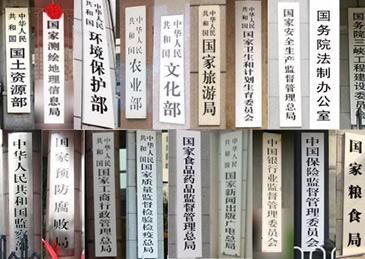 中华人民
共和国
国土资源部
国家测绘地理信息局
中华人民
共和国
环境保护部
中华人民
共和国
农业部
中华人民
共和国
文化部
中华人民
共和国
国家旅游局
中华人民
共和国
国家卫生和计划生育委员会
国家安全生产监督管理总局
国务院法制办公室
国务院三峡工程建设委员
中华人民共和国监察
国家预防腐败局
中华人民
共和国
国家工商行政管理总局
中华人民
共和国
国家质量监督检验检疫总局
国家食品药品监督管理总局
中华人民
共和国
国家新闻出版广电总局
中国银行业监督管理委员会
中国保险监督管理委员会
国家粮食局